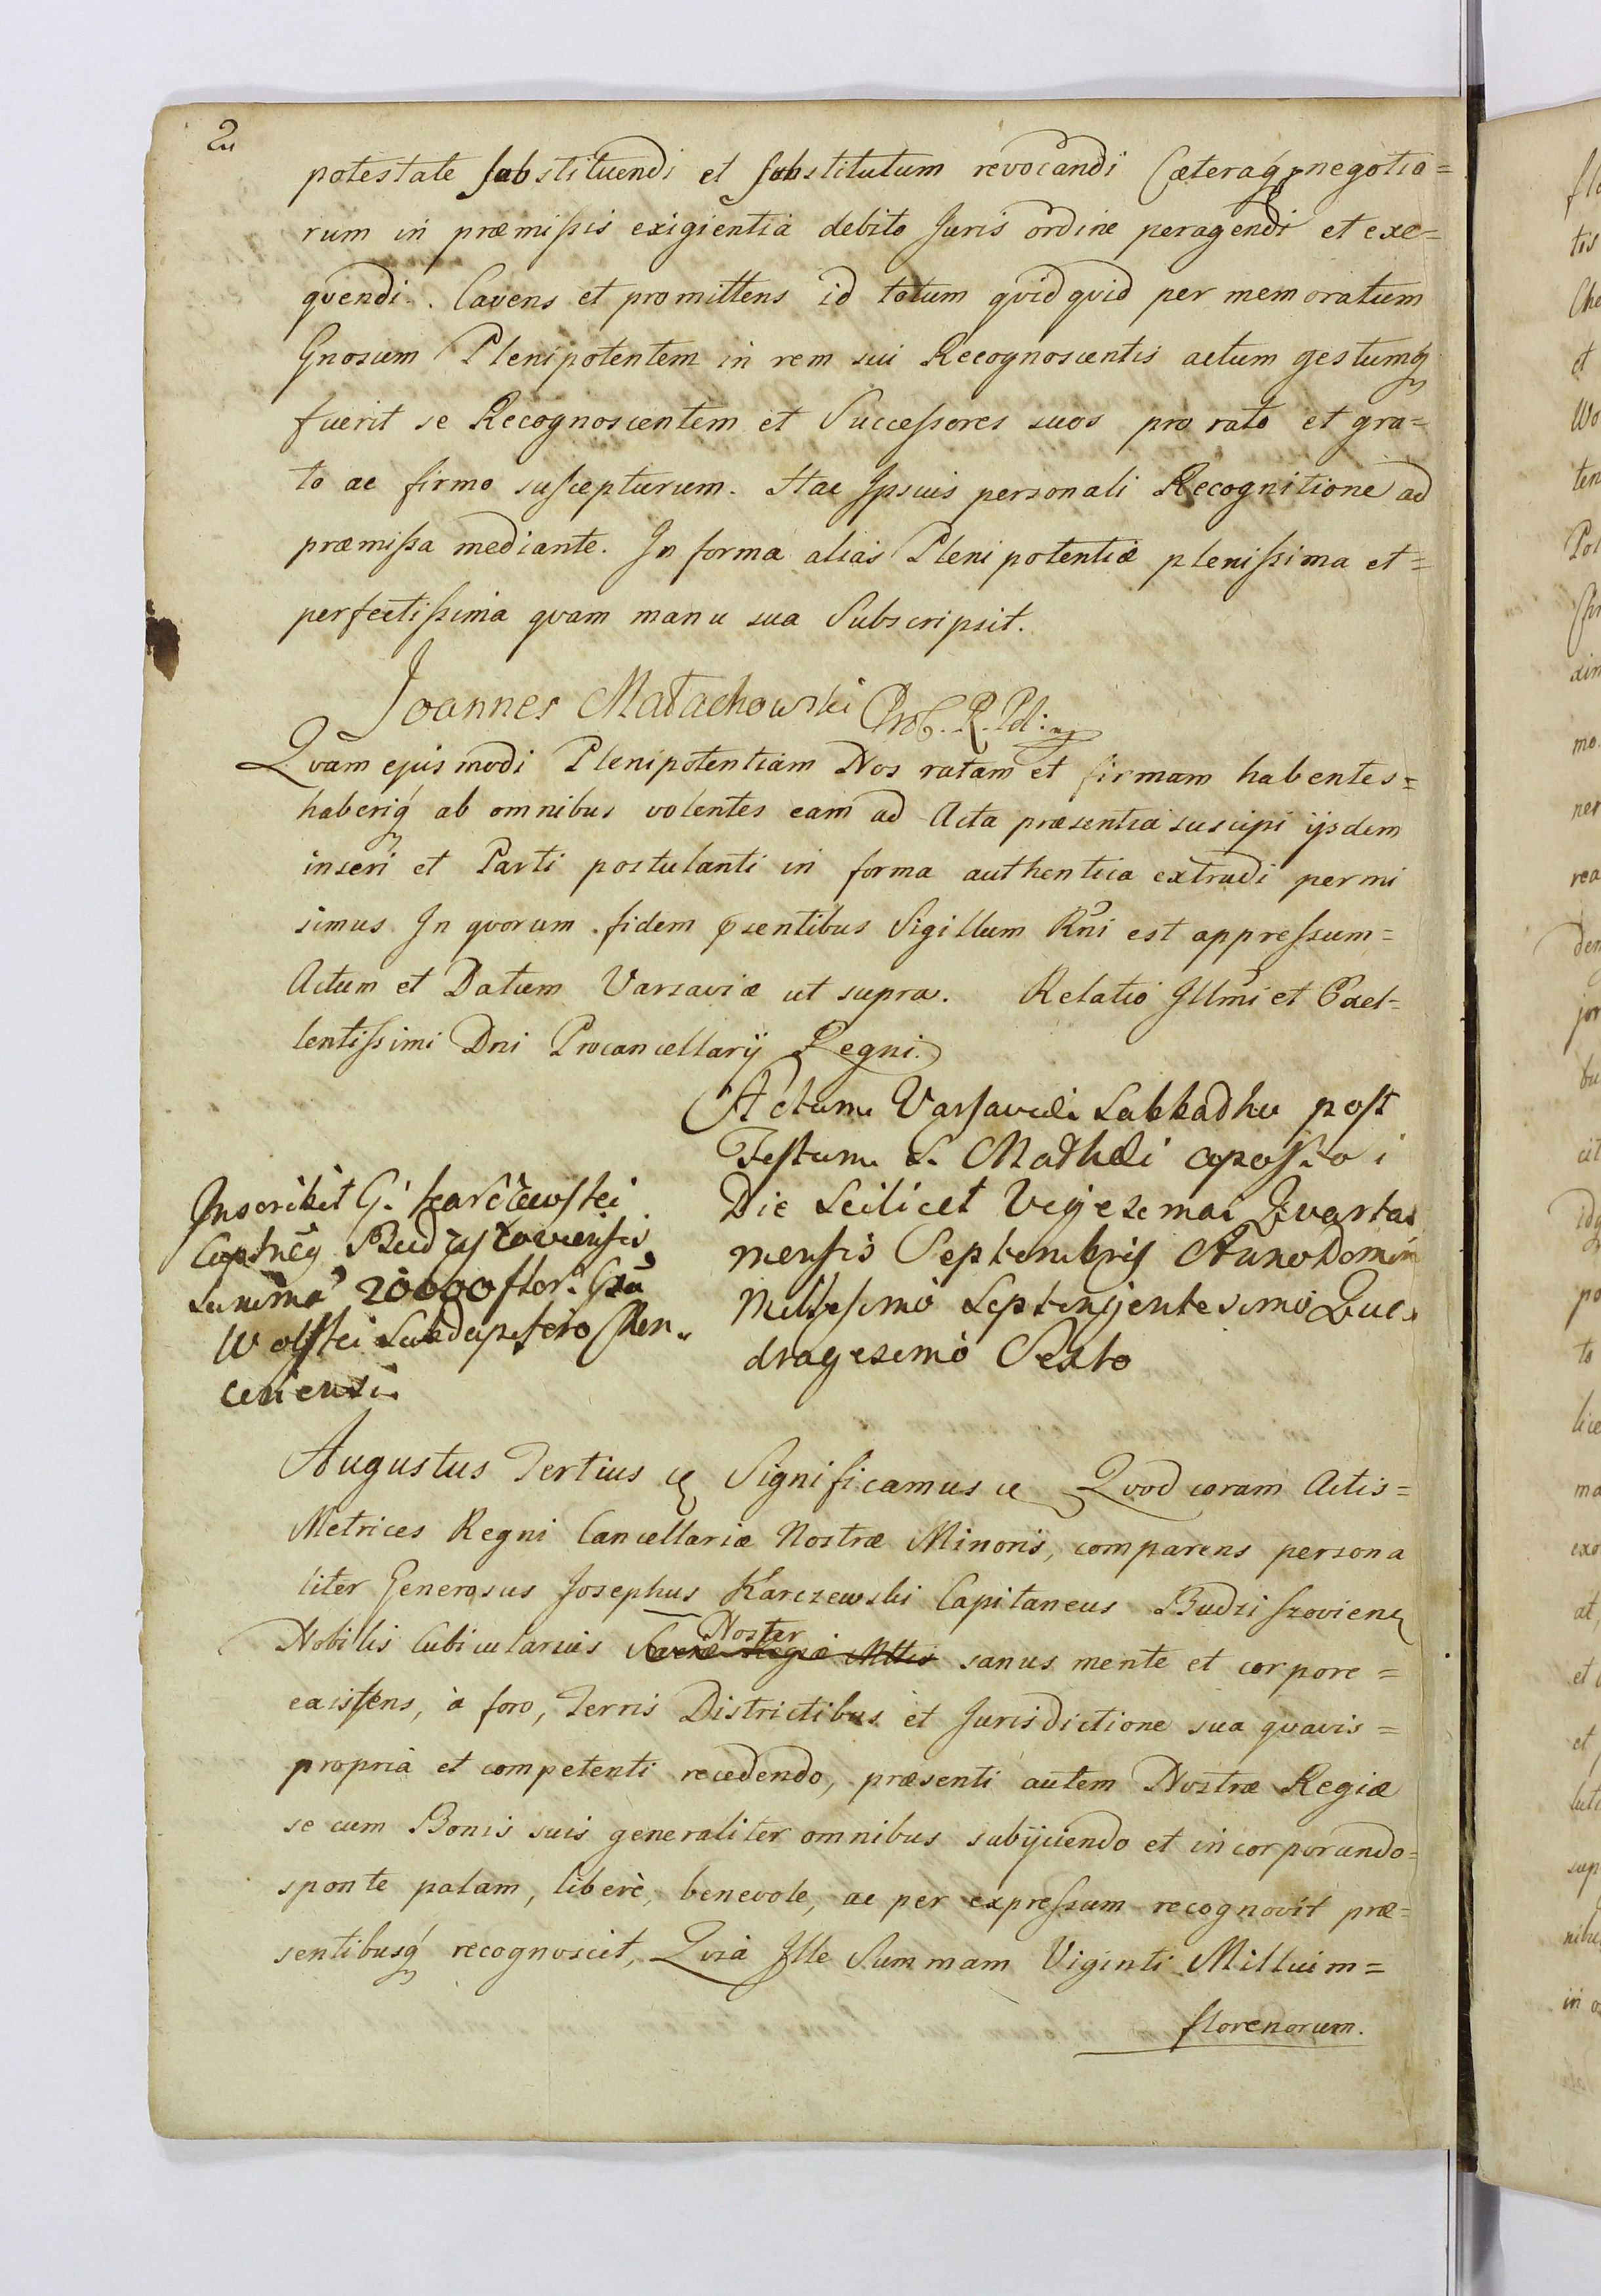 2
potestate substituendi et substitutum revocandi Cæteraq́ negotio=
rum in præmissis exigientia debito Juris ordine peragendi et exe=
qvendi. Cavens et promittens id totum qvidqvid per memoratum
Gnosum Plenipotentem in rem sui Recognoscentis actum gestumq́
fuerit se Recognoscentem et Successores suos pro rato et gra=
to ac firmo suscepturum. Hac Ipsius personali Recognitione ad
præmissa mediante. In forma alias Plenipotentiæ plenissima et=
perfectissima qvam manu sua Subscripsit.
Joannes Małachowski
Qvam ejusmodi Plenipotentiam Nos ratam et firmam habentes=
haberiq́ ab omnibus volentes eam ad Acta præsentia suscipi ijsdem
inseri et Parti postulanti in forma authentica extradi permi
simus In qvorum fidem psentibus Sigillum Rni est appressum=
Actum et Datum Varsaviæ ut supra. Relatio Illmi et Excel=
lentissimi Dni Procancellarij Regni.
Actum Varsaviæ Sabbatho post
Festum S. Mathæi apostoi
Die Scilicet Vigesema Qvarta
mensis Septembris Anno Domin
Millesimo Septingentesimo Qua
dragesimo Sexto
Inscribit G. Karczewski
Captneg Budzyszoviensis
summa 20000 flor. Gso
Wolski Subdapifero
censi
Augustus Tertius Significamus Qvod coram Actis=
Metrices Regni Cancellariæ Nostræ Minoris, comparens persona
liter Generosus Josephus Karczewski Capitaneus Budziszovien
Noster
Nobilis Cubicularius Sacræ Regiæ Mttis sanus mente et corpore=
existens, à foro, Terris Districtibus et Jurisdictione sua qvavis=
propria et competenti recedendo, præsenti autem Nostræ Regiæ
se cum Bonis suis generaliter omnibus subijciendo et incorporando=
sponte palam, liberè, benevole, ac per expressum recognovit præ=
sentibusq́ recognoscit, Qvia Ille Summam Viginti Millium=
florenorum.